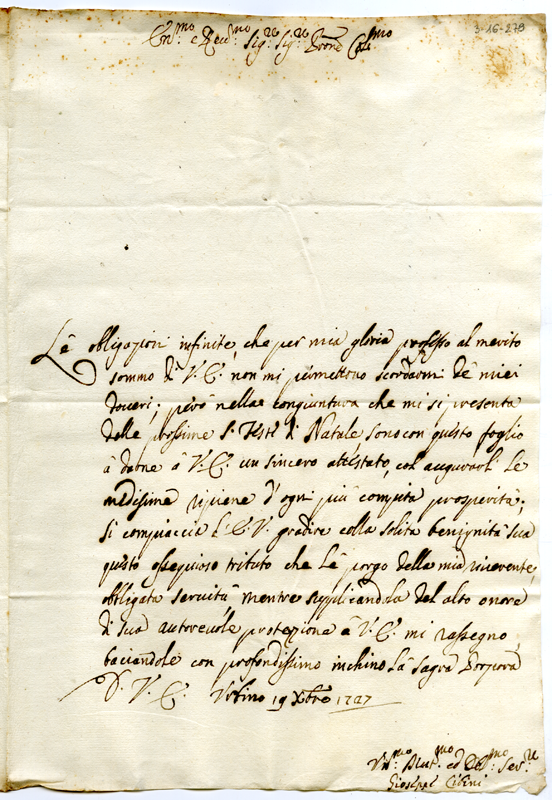 3-16-279
Em.mo e Rev.mo Sig.re Sig.re Prone Col.mo
Le obligazioni infinite, che per mia gloria professo al merito
sommo di V. E. non mi permettono scordarmi de miei
doveri; però nella congiuntura che mi si presenta
delle prossime S. Feste di Natale, sono con questo foglio
à darne à V. E. un sincero attestato, col augurarle Le
medesime ripiene d'ogni più compita prosperità;
si compiaccia l'E. V. gradire colla solita benignità sua
questo ossequioso tributo che Le porgo della mia riverente,
obligata servitù, mentre supplicandola del alto onore
di sua autorevole protezione à V. E. mi rassegno,
baciandole con profondissimo inchino La Sagra Porpora
D. V. E. Urbino 19 Xbre 1727
Um.mo Obl.mo ed Dev.mo Ser.re
Gioseppe